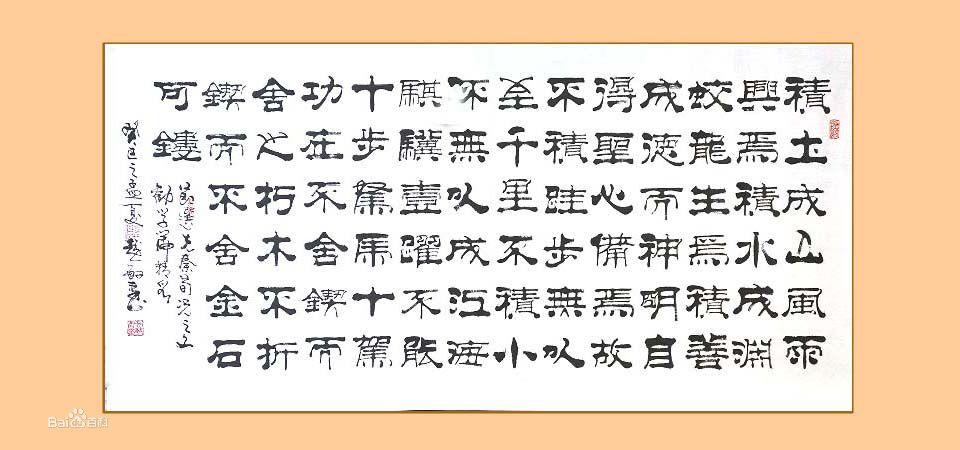 積土成山風雨
興焉積水成淵
蛟龍生焉積善
成德而神明自
得聖心備焉故
不積跬步無以
至千里不積小
流無以成江海
騏驥壹躍不能
十步駑馬十駕
功在不舍鍥而
舍之朽木不折
鍥而不舍金石
可鏤
節選先秦荀況之文
勸學篇
癸巳之孟夏
Bai百科